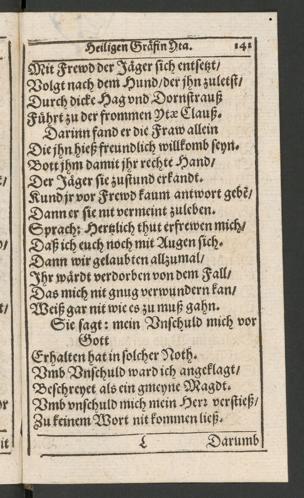 Heiligen Gräfin Yta. 141
Mit Frewd der Jäger sich entsetzt/
Volgt nach dem Hund/der jhn zuletst/
Durch dicke Hag vnd Dornstrauß
Führt zu der frommen Ytæ Clauß.
Darinn fand er die Fraw allein
Die jhn hieß freundlich willkomb seyn.
Bott jhm damit jhr rechte Hand/
Der Jäger sie zustund erkandt.
Kund jr vor Frewd kaum antwort gebē/
Dann er sie nit vermeint zuleben.
Sprach: Hertzlich thut erfrewen mich/
Daß ich euch noch mit Augen sich.
Dann wir gelaubten allzumal/
Jhr wärdt verdorben von dem Fall/
Das mich nit gnug verwundern kan/
Weiß gar nit wie es zu muß gahn.
Sie sagt: mein Vnschuld mich vor
Gott
Erhalten hat in solcher Noth.
Vmb Vnschuld ward ich angeklagt/
Beschreyet als ein gmeyne Magdt.
Vmb vnschuld mich mein Herr verstieß/
Zu keinem Wort nit kommen ließ.
L Darumb